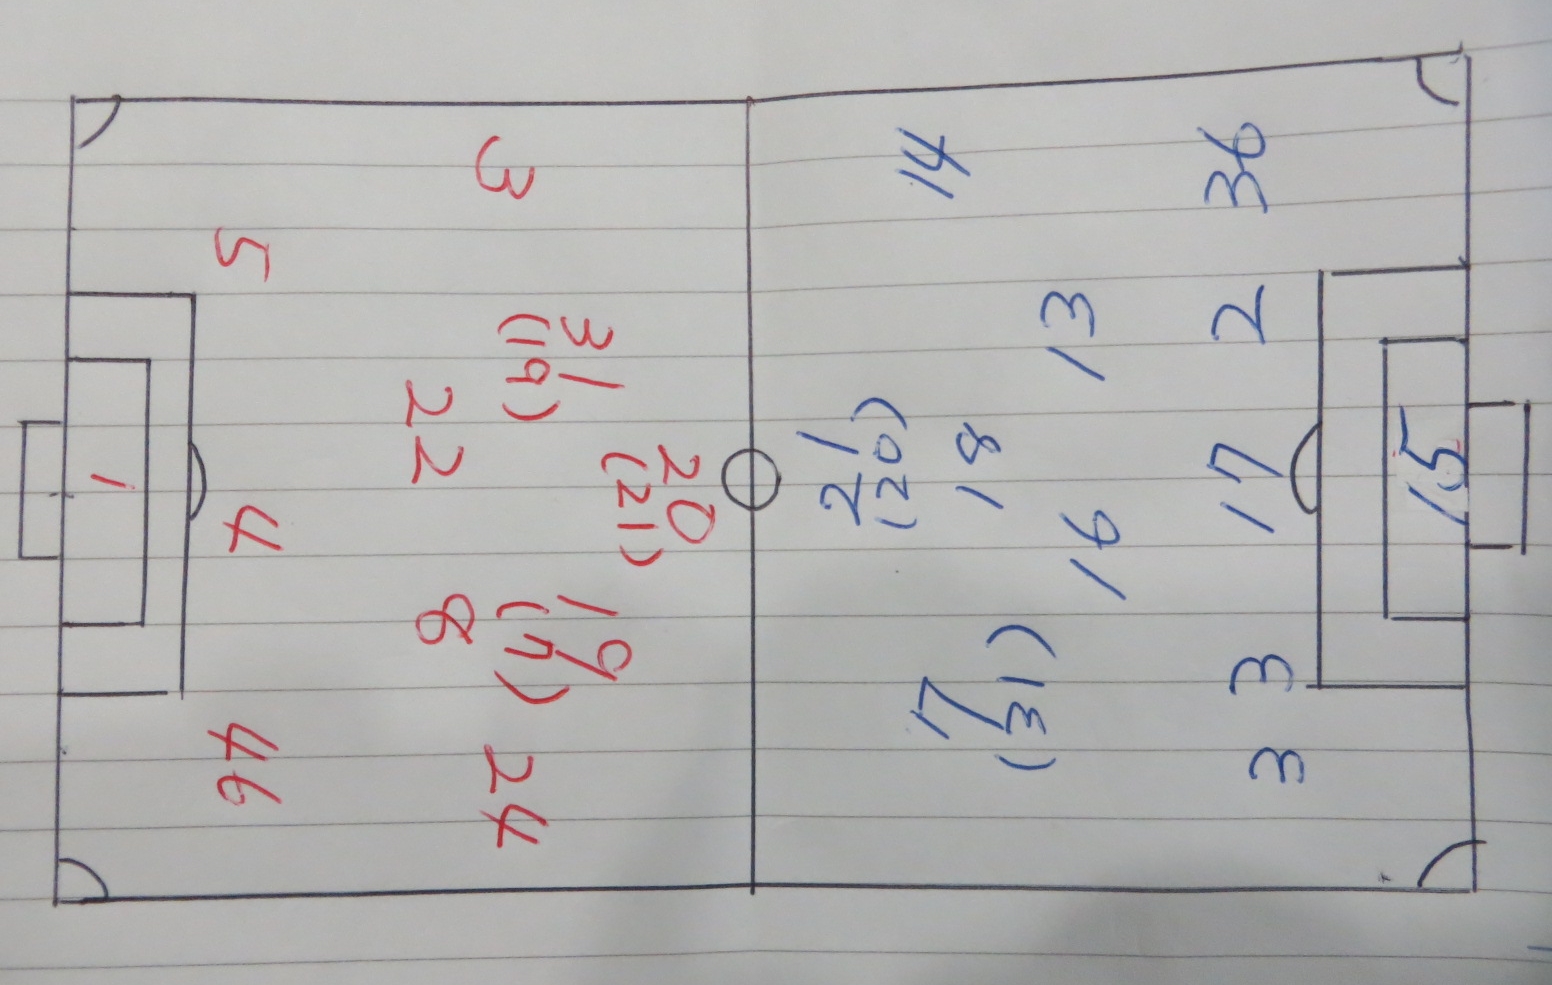 20
(21)
31 19
(19) (17)
3 24
22 8
5 4 46
1
21
(20)
17 14
(31)
18
16 13
33 17 2 36
15